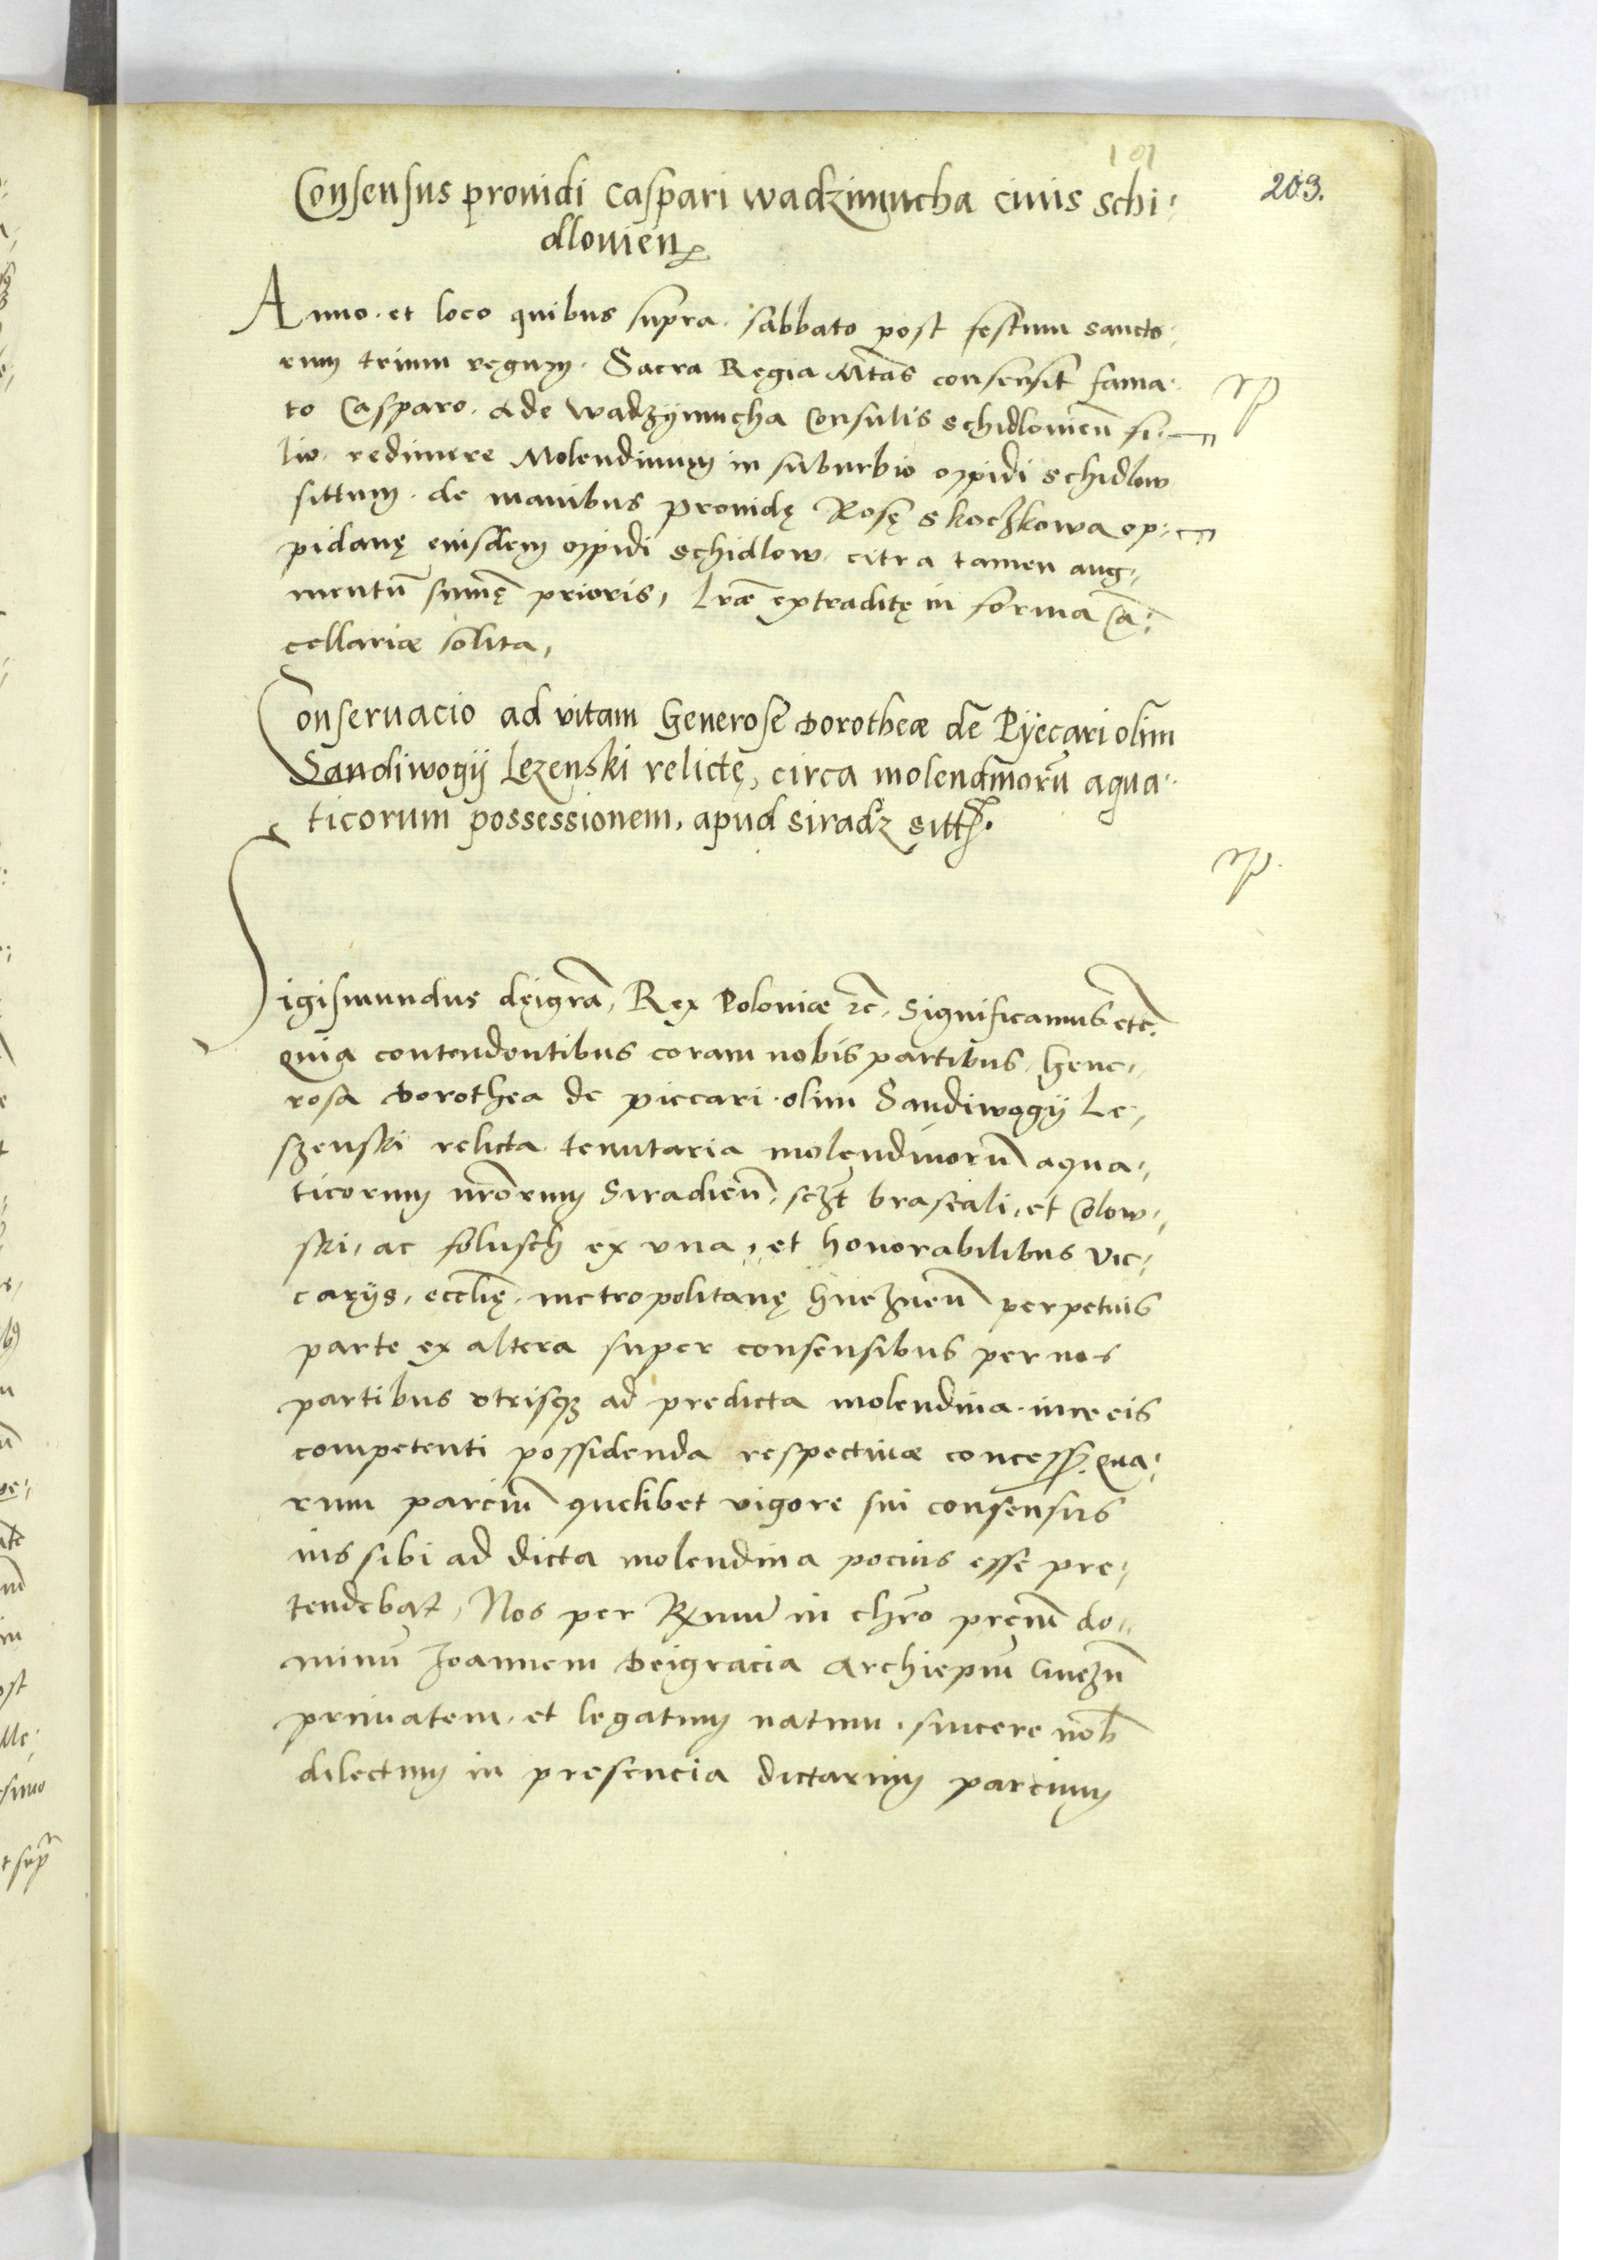 101
203.
Consensus prouidi Caspari wadzimucha ciuis schi:
dlouien̄
Anno et loco quibus supra. sabbato post festum sancto:
rum trium regum. Sacra Regia Mtas consensit fama:
to Casparo. de wadzÿmucha Consulis schidlouien̄ fi:
lio. redimere Molendinum in suburbio oppidi schidlow
sittum. de manibus prouidę Rosę skoczkowa op:
pidanę eiusdem oppidi schidlow. citra tamen aug:
mentū sum̄ę prioris, Lr̄æ extraditę in forma Cā:
cellariæ solita,
Conseruacio ad vitam Generose Dorotheæ de Pÿecari olim
Sandiwogÿ Lezenski relictę, circa molendinorū aqua:
ticorum possessionem, apud siradz sitt.
rp
rp.
Sigismundus deigrā, Rex Poloniæ ꝛc̄. Significamus etc̄.
Quia contendentibus coram nobis partibus, Gene:
rosa Dorothea de pieccari olim Sandiwogÿ Le:
szenski relicta tenutaria molendinorū aqua:
ticorum nr̄orum Siradien̄. sczt̄ braseali, et Colow:
ski, ac folusch ex vna, et honorabilibus vic:
carÿs, eccl̄ię. metropolitanę Gneznen̄ perpetuis
parte ex altera super consensibus per nos
partibus vtrisqꝫ ad predicta molendina iure eis
competenti possidenda respectiuæ concess. Qua:
rum parciū quelibet vigore sui consensus
ius sibi ad dicta molendina pocius esse pre:
tendebat, Nos per Rx̄mū in chr̄o pr̄em̄ do:
minū Joannem Deigracia Archiep̄um Gnezn̄
primatem, et legatum natum. sincere nob̄
dilectum in presencia dictarum parcium